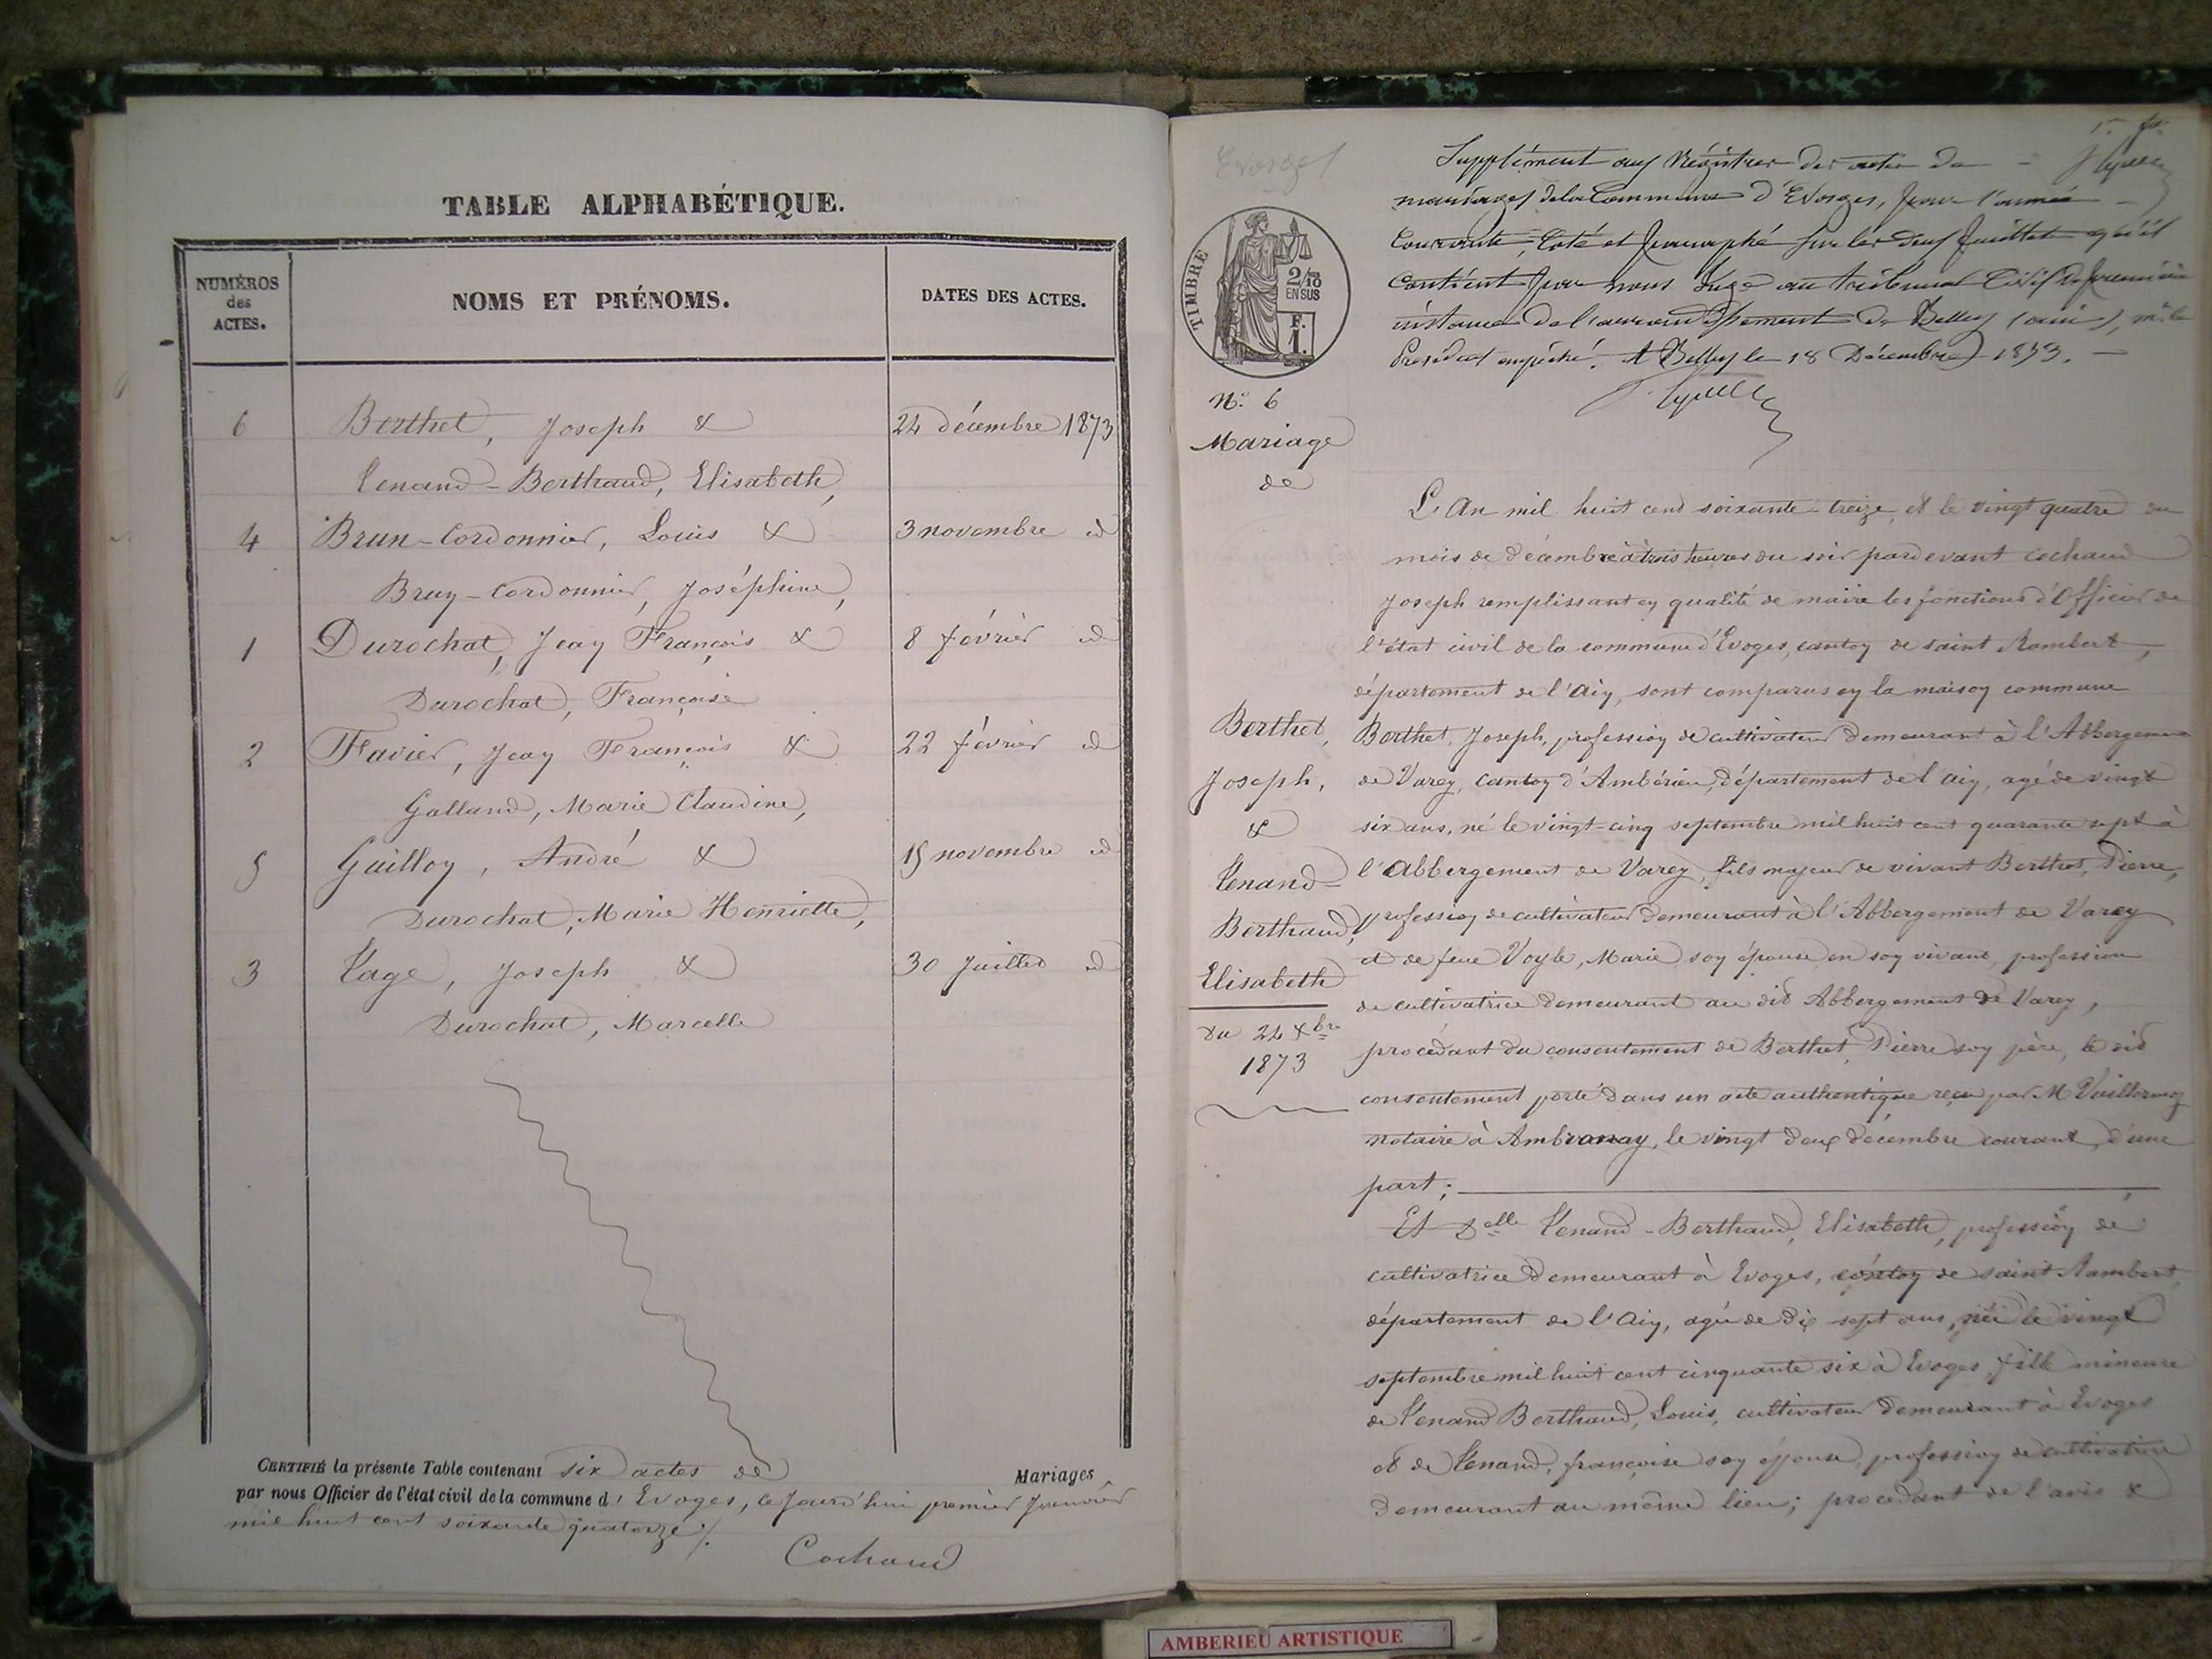 TABLE ALPHABÉTIQUE.
NUMÉROS
des
ACTES.
NOMS ET PRÉNOMS.
DATES DES ACTES.
6 Berthet, Joseph & 24 décembre 1873
Tenand-Berthaud, Elisabeth,
4 Brun-Cordonnier, Louis & 3 novembre id
Bruy-Cordonnier, Joséphine,
1 Durochat, Jean François & 8 février id
Durochat, Françoise
2 Favier, Jean François & 22 février id
Galland, Marie Claudine,
5 Guilloy, André & 15 novembre id
Durochat, Marie Henriette,
3 Tage, Joseph & 30 Juillet id
Durochat, Marcelle
CERTIFIÉ la présente Table contenant six actes de Mariages
par nous Officier de l'état civil de la commune d'Evoges, ce jourd'hui premier Janvier
mil huit cent soixante quatorze ./.
Cochaud
Evosges
Supplément aux Régistres des actes de
mariages de la Commune d'Evosges, pour l'année
Courante, Coté et paraphé sur les deux feuillets qu'il
Contient par nous Juge au tribunal Civil de première
instance de l'arrondissement de Belley (ain), mr le
Président empêché. A Belley le 18 Décembre 1873.
TIMBRE
2/10
EN SUS
F.
1.
N.º 6
Mariage
de
Berthet,
Joseph,
&
Tenand-
Berthaud,
Elisabeth
du 24 Xbre
1873
L'An mil huit cent soixante-treize, et le vingt quatre du
mois de décembre à trois heures du soir pardevant Cochaud
Joseph remplissant en qualité de maire les fonctions d'Officier de
l'état civil de la commune d'Evoges, canton de saint Rambert,
département de l'Ain, sont comparus en la maison commune
Berthet, Joseph, profession de cultivateur demeurant à l'Abbergement
de Varey, canton d'Ambérieu, département de l'ain, agé de vingt
six ans, né le vingt-cinq septembre mil huit cent quarante sept à
l'Abbergement de Varey, fils majeur de vivant Berthet, Pierre,
profession de cultivateur demeurant à l'Abbergement de Varey
et de feue Voyle, Marie son épouse en son vivant, profession
de cultivatrice demeurant au dit Abbergement de Varey,
procédant du consentement de Berthet, Pierre son père, le dit
consentement porté dans un acte authentique reçu par M Vuillermoz
notaire à Ambronay, le vingt deux décembre courant, d'une
part;
Et Delle Tenand-Berthaud, Elisabeth, profession de
cultivatrice demeurant à Evoges, canton de saint Rambert,
département de l'Ain, agée de dix sept ans, née le vingt
septembre mil huit cent cinquante six à Evoges, fille mineure
de Tenand Berthaud, Louis, cultivateur demeurant à Evoges
et de Tenand, françoise son épouse, profession de cultivatrice
demeurant au même lieu; procédant de l'avis &
AMBERIEU ARTISTIQUE